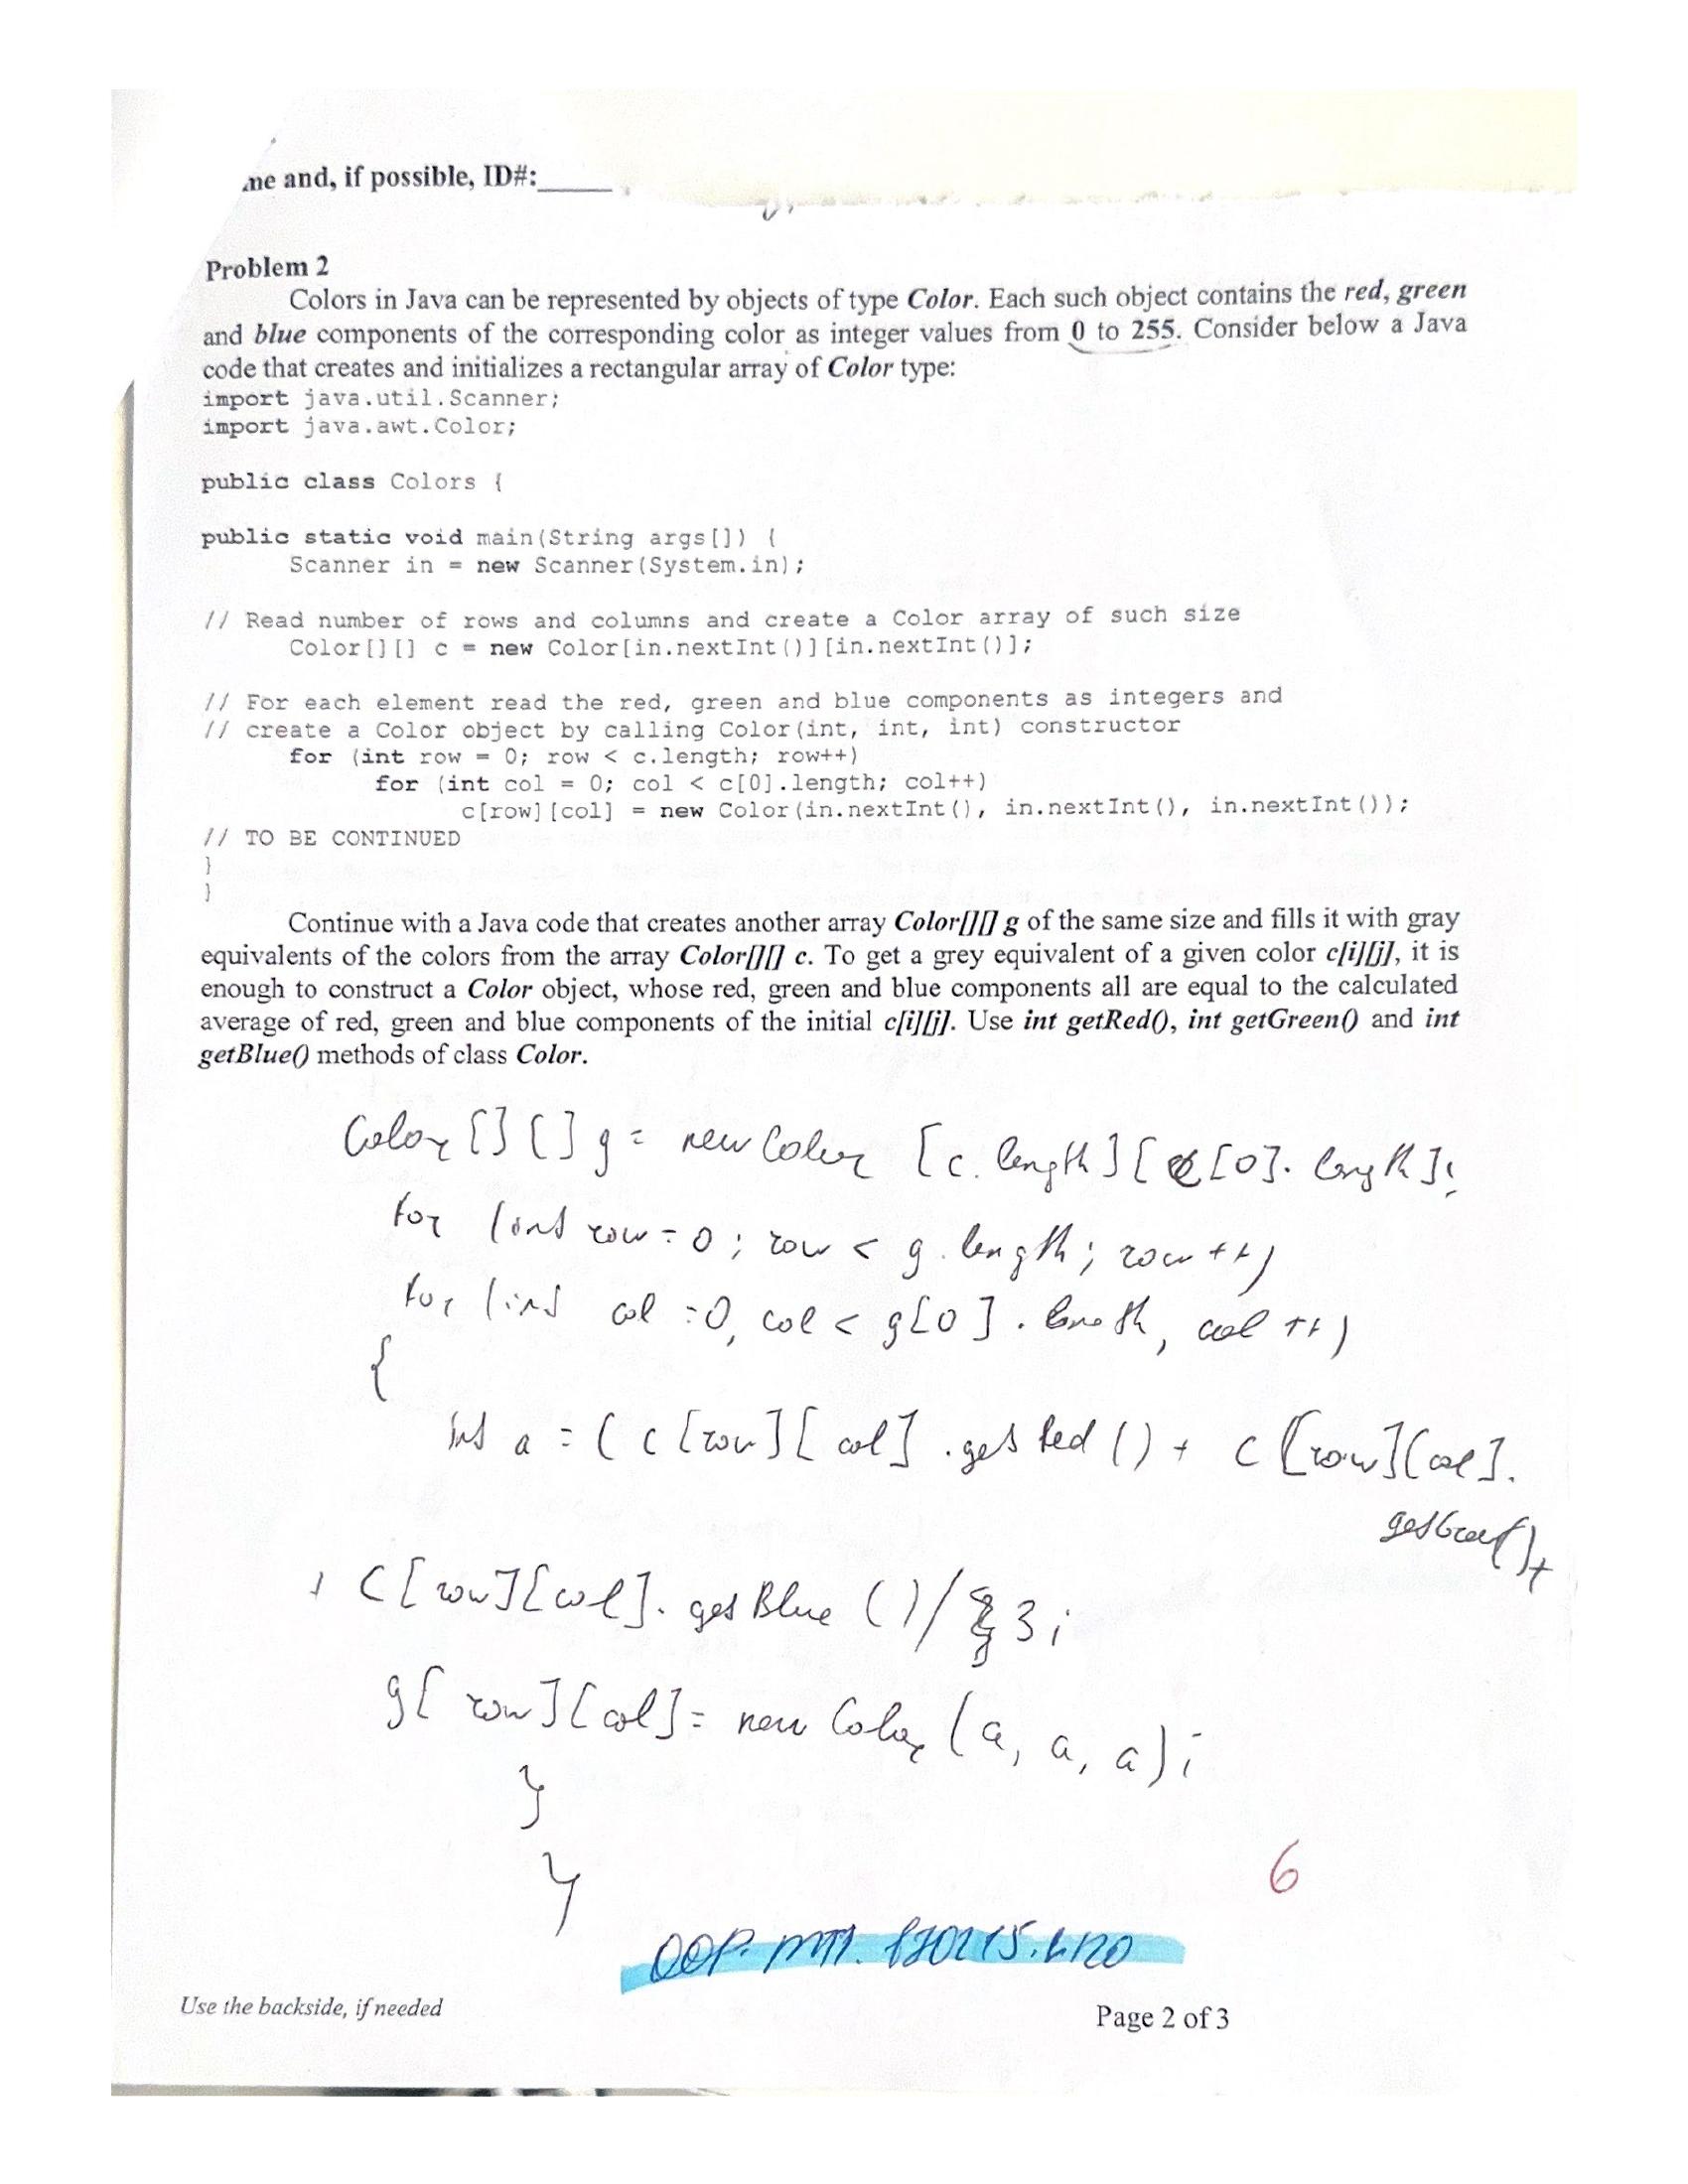 me and, if possible, ID#:_____
Problem 2
Colors in Java can be represented by objects of type Color. Each such object contains the red, green
and blue components of the corresponding color as integer values from 0 to 255. Consider below a Java
code that creates and initializes a rectangular array of Color type:
import java.util.Scanner;
import java.awt.Color;
public class Colors {
public static void main(String args[]) {
Scanner in = new Scanner(System.in);
// Read number of rows and columns and create a Color array of such size
Color[][] c = new Color[in.nextInt()][in.nextInt()];
// For each element read the red, green and blue components as integers and
// create a Color object by calling Color(int, int, int) constructor
for (int row = 0; row < c.length; row++)
for (int col = 0; col < c[0].length; col++)
c[row][col] = new Color(in.nextInt(), in.nextInt(), in.nextInt());
// TO BE CONTINUED
}
}
Continue with a Java code that creates another array Color[][] g of the same size and fills it with gray
equivalents of the colors from the array Color[][] c. To get a grey equivalent of a given color c[i][j], it is
enough to construct a Color object, whose red, green and blue components all are equal to the calculated
average of red, green and blue components of the initial c[i][j]. Use int getRed(), int getGreen() and int
getBlue() methods of class Color.
Color [] [] g = new Color [c. length] [c[0]. length];
for (int row = 0; row < g. length; row ++)
for (int col = 0, col < g[0]. length, col ++)
{
int a = ( c [row] [ col] . get Red () + c [row][col].
getGreen()+
+ c[row][col]. get Blue ()/ 3;
g[ row][col] = new Color (a, a, a);
}
}
6
OOP. MT1.
Use the backside, if needed
Page 2 of 3